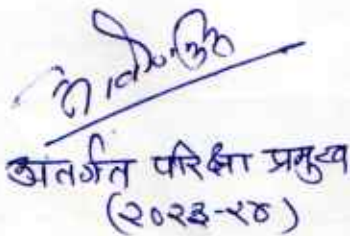 अतर्गत परिक्षा प्रमुख
(२०२३-२४)